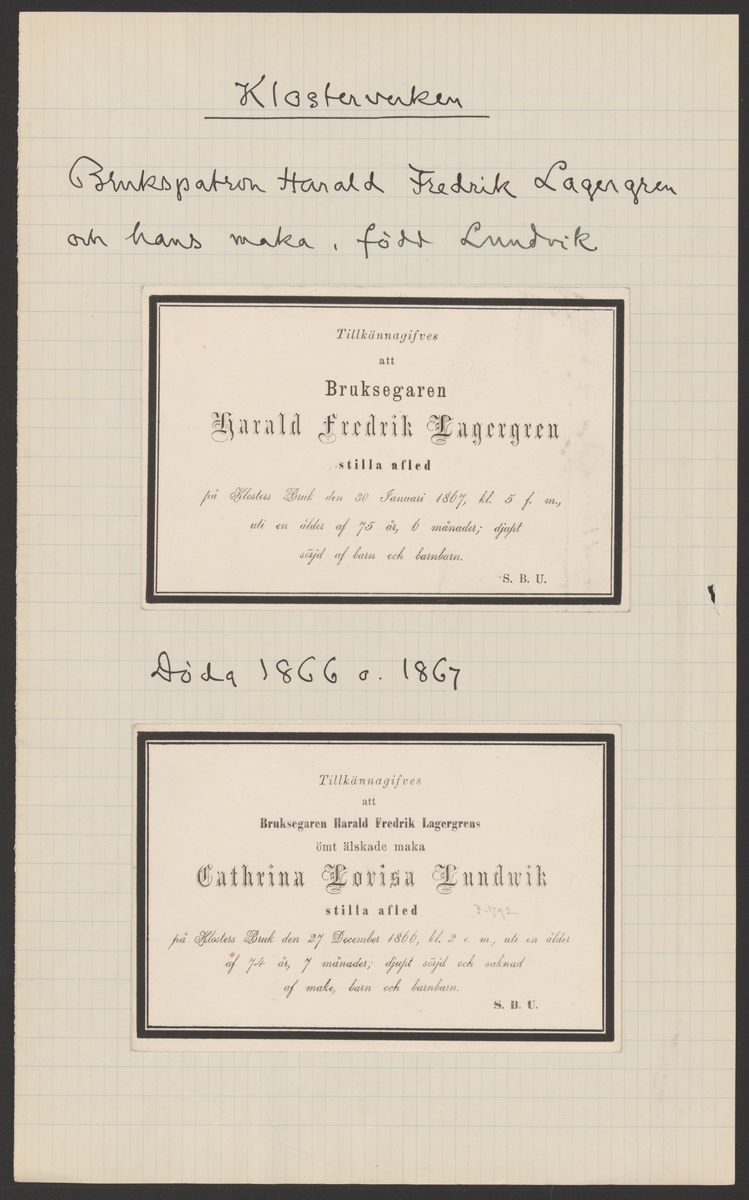 Klosterverken
Brukspatron Harald Fredrik Lagergren
och hans maka, född Lundvik
Tillkännagifves
att
Bruksegaren
Harald Fredrik Lagergren
stilla afled
på Klosters Bruk den 30 Januari 1867, kl. 5 f. m.,
uti en ålder af 75 år, 6 månader; djupt
sörjd af barn och barnbarn.
S. B. U.
Döda 1866 o. 1867
Tillkännagifves
att
Bruksegaren Harald Fredrik Lagergrens
ömt älskade maka
Cathrina Lovisa Lundwik
stilla afled
f. 1792
på Klosters Bruk den 27 December 1866, kl. 2 e. m., uti en ålder
af 74 år, 7 månader; djupt sörjd och saknad
af make, barn och barnbarn.
S. B. U.